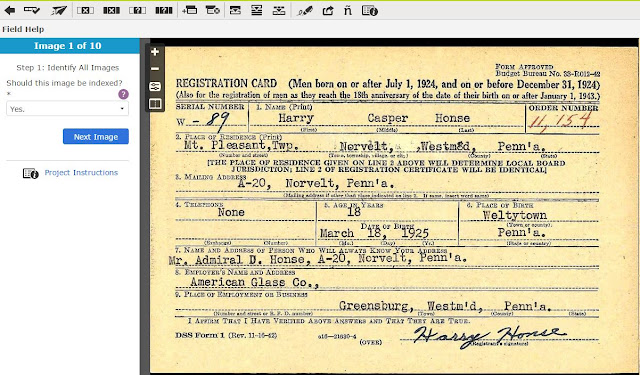 Field Help
Image 1 of 10
Step 1: Identify All Images
Should this image be indexed?
*
Yes.
Next Image
Project Instructions
FORM APPROVED
Budget Bureau No. 33-R012-42
REGISTRATION CARD (Men born on or after July 1, 1924, and on or before December 31, 1924)
(Also for the registration of men as they reach the 18th anniversary of the date of their birth on or after January 1, 1943.)
SERIAL NUMBER 1. NAME (Print) ORDER NUMBER
W - 89 Harry Casper Honse 11,154
(First) (Middle) (Last)
2. PLACE OF RESIDENCE (Print)
Mt. Pleasant,Twp. Nervelt, ,Westm&d, Penn'a.
(Number and street) (Town, township, village, or city) (County) (State)
[THE PLACE OF RESIDENCE GIVEN ON LINE 2 ABOVE WILL DETERMINE LOCAL BOARD
JURISDICTION; LINE 2 OF REGISTRATION CERTIFICATE WILL BE IDENTICAL]
3. MAILING ADDRESS
A-20, Norvelt, Penn'a.
(Mailing address if other than place indicated on line 2. If same, insert word same)
4. TELEPHONE 5. AGE IN YEARS 6. PLACE OF BIRTH
None 18 Weltytown
(Town or county)
DATE OF BIRTH
March 18, 1925 Penn'a.
(Exchange) (Number) (Mo.) (Day) (Yr.) (State or country)
7. NAME AND ADDRESS OF PERSON WHO WILL ALWAYS KNOW YOUR ADDRESS
Mr. Admiral D. Honse, A-20, Norvelt, Penn'a.
8. EMPLOYER'S NAME AND ADDRESS
American Glass Co.,
9. PLACE OF EMPLOYMENT OR BUSINESS
Greensburg, Westm'd, Penn'a.
(Number and street or R. F. D. number) (Town) (County) (State)
I AFFIRM THAT I HAVE VERIFIED ABOVE ANSWERS AND THAT THEY ARE TRUE.
DSS Form 1 (Rev. 11-16-42) 16—21630-4 Harry Honse
(OVER) (Registrant's signature)